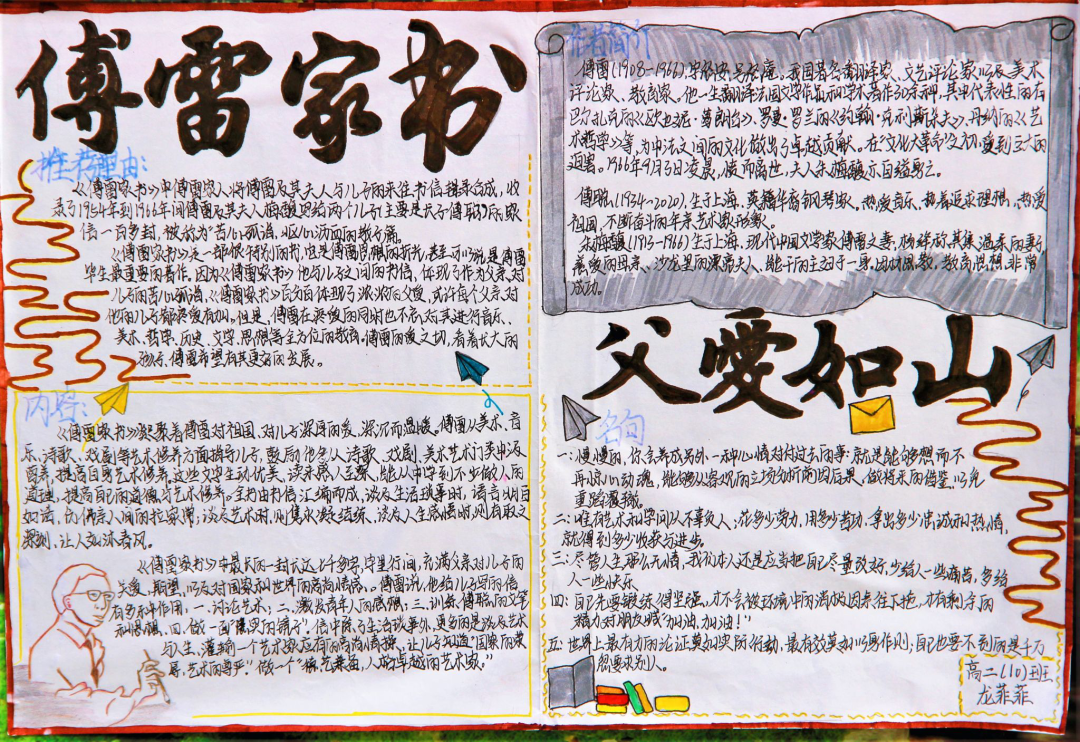 傅雷家书
推荐理由:
《傅雷家书》由傅雷家人将傅雷及其夫人与儿子的来往书信摘录合成,收
录了1954年到1966年间傅雷及其夫人梅馥写给两个儿子(主要是长子傅聪)的家
信一百多封,被称为"苦心孤诣,呕心沥血的教子篇。
《傅雷家书》是一部很特别的书,也是傅雷思想的折射,甚至可以说是傅雷
毕生最重要的著作,因为《傅雷家书》他与儿子之间的书信,体现了作为父亲,对
儿子的苦心孤诣,《傅雷家书》百分百体现了浓浓的父爱,或许每个父亲对
他的儿子都疼爱有加,但是,傅雷在疼爱的同时也不忘对其进行音乐、
美术、哲学、历史、文学、思想等全方位的教育。傅雷的爱之切,看着长大的
孩子,傅雷希望有其更好的发展。
内容:
《傅雷家书》凝聚着傅雷对祖国,对儿子深厚的爱,深沉而温暖。傅雷从美术、音
乐、诗歌、戏剧等艺术修养方面指导儿子,鼓励他多从诗歌、戏剧、美术艺术门类中汲
取营养,提高自身艺术修养,这些文字生动优美,读来感人至深,能从中学到不少做人的
道理,提高自己的道德与艺术修养。全书由书信汇编而成,谈及生活琐事时,语言明白
如话,仿佛亲人间的拉家常,谈及艺术时,则隽永凝结练,谈及人生感悟时,则有取之
深刻,让人如沐春风。
《傅雷家书》中最长的一封长达七千多字,字里行间,充满父亲对儿子的
关爱、期望,以及对国家和世界的高尚情感。傅雷说,他给儿子写的信
有多种作用:一、讨论艺术;二、激发青年人的感想;三、训练傅聪的文笔
和思想、四、做一面"忠实的镜子"。信中除了生活琐事外,更多的是谈及艺术
与人生,灌输一个艺术家应有的高尚情操,让儿子知道"国家的荣
辱、艺术的尊严"做一个"德艺兼备,人格卓越的艺术家。"
作者简介
傅雷(1908-1966),字怒安,号怒庵。我国著名翻译家、文艺评论家以及美术
评论家、教育家。他一生翻译法国文学作品和学术著作30余种,其中代表性的有
巴尔扎克的《欧也妮·葛朗台》、罗曼·罗兰的《约翰·克利斯朵夫》、丹纳的《艺
术哲学》等,为中法之间的文化做出了卓越贡献。在"文化大革命"之初,受到巨大的
迫害。1966年9月3日凌晨,愤而离世,夫人朱梅馥亦自缢身亡。
傅聪(1934-2020),生于上海,英籍华裔钢琴家。热爱音乐、执着追求理想,热爱
祖国,不断奋斗的年亲艺术家形象。
朱梅馥(1913-1966)生于上海,现代中国文学家傅雷之妻,杨绛称,其集温柔的妻子、
慈爱的母亲、沙龙里的漂亮夫人、能干的主妇于一身。因材施教,教育思想,非常
成功。
父爱如山
名句
一:慢慢的,你会养成另外一种心情对付过去的事:就是能够想到而不
再惊心动魂,能够从客观的立场分析前因后果,做将来的借鉴,以免
重蹈覆辙。
二:唯有艺术和学问从不辜负人:花多少劳力,用多少苦功,拿出多少忠诚和热情,
就得到多少收获与进步。
三:尽管人生那么无情,我们本人还是应当把自己尽量改好,少给人一些痛苦,多给
人一些快乐
四:自己先要锻练得坚强,才不会被环境中的消极因素往下拖,才有剩余的
精力对朋友喊"加油,加油!"
五:世界上最有力的论证莫如实际行动,最有效莫如以身作则;自己也要不到的是千万
别要求别人。
高二(10)班
龙菲菲